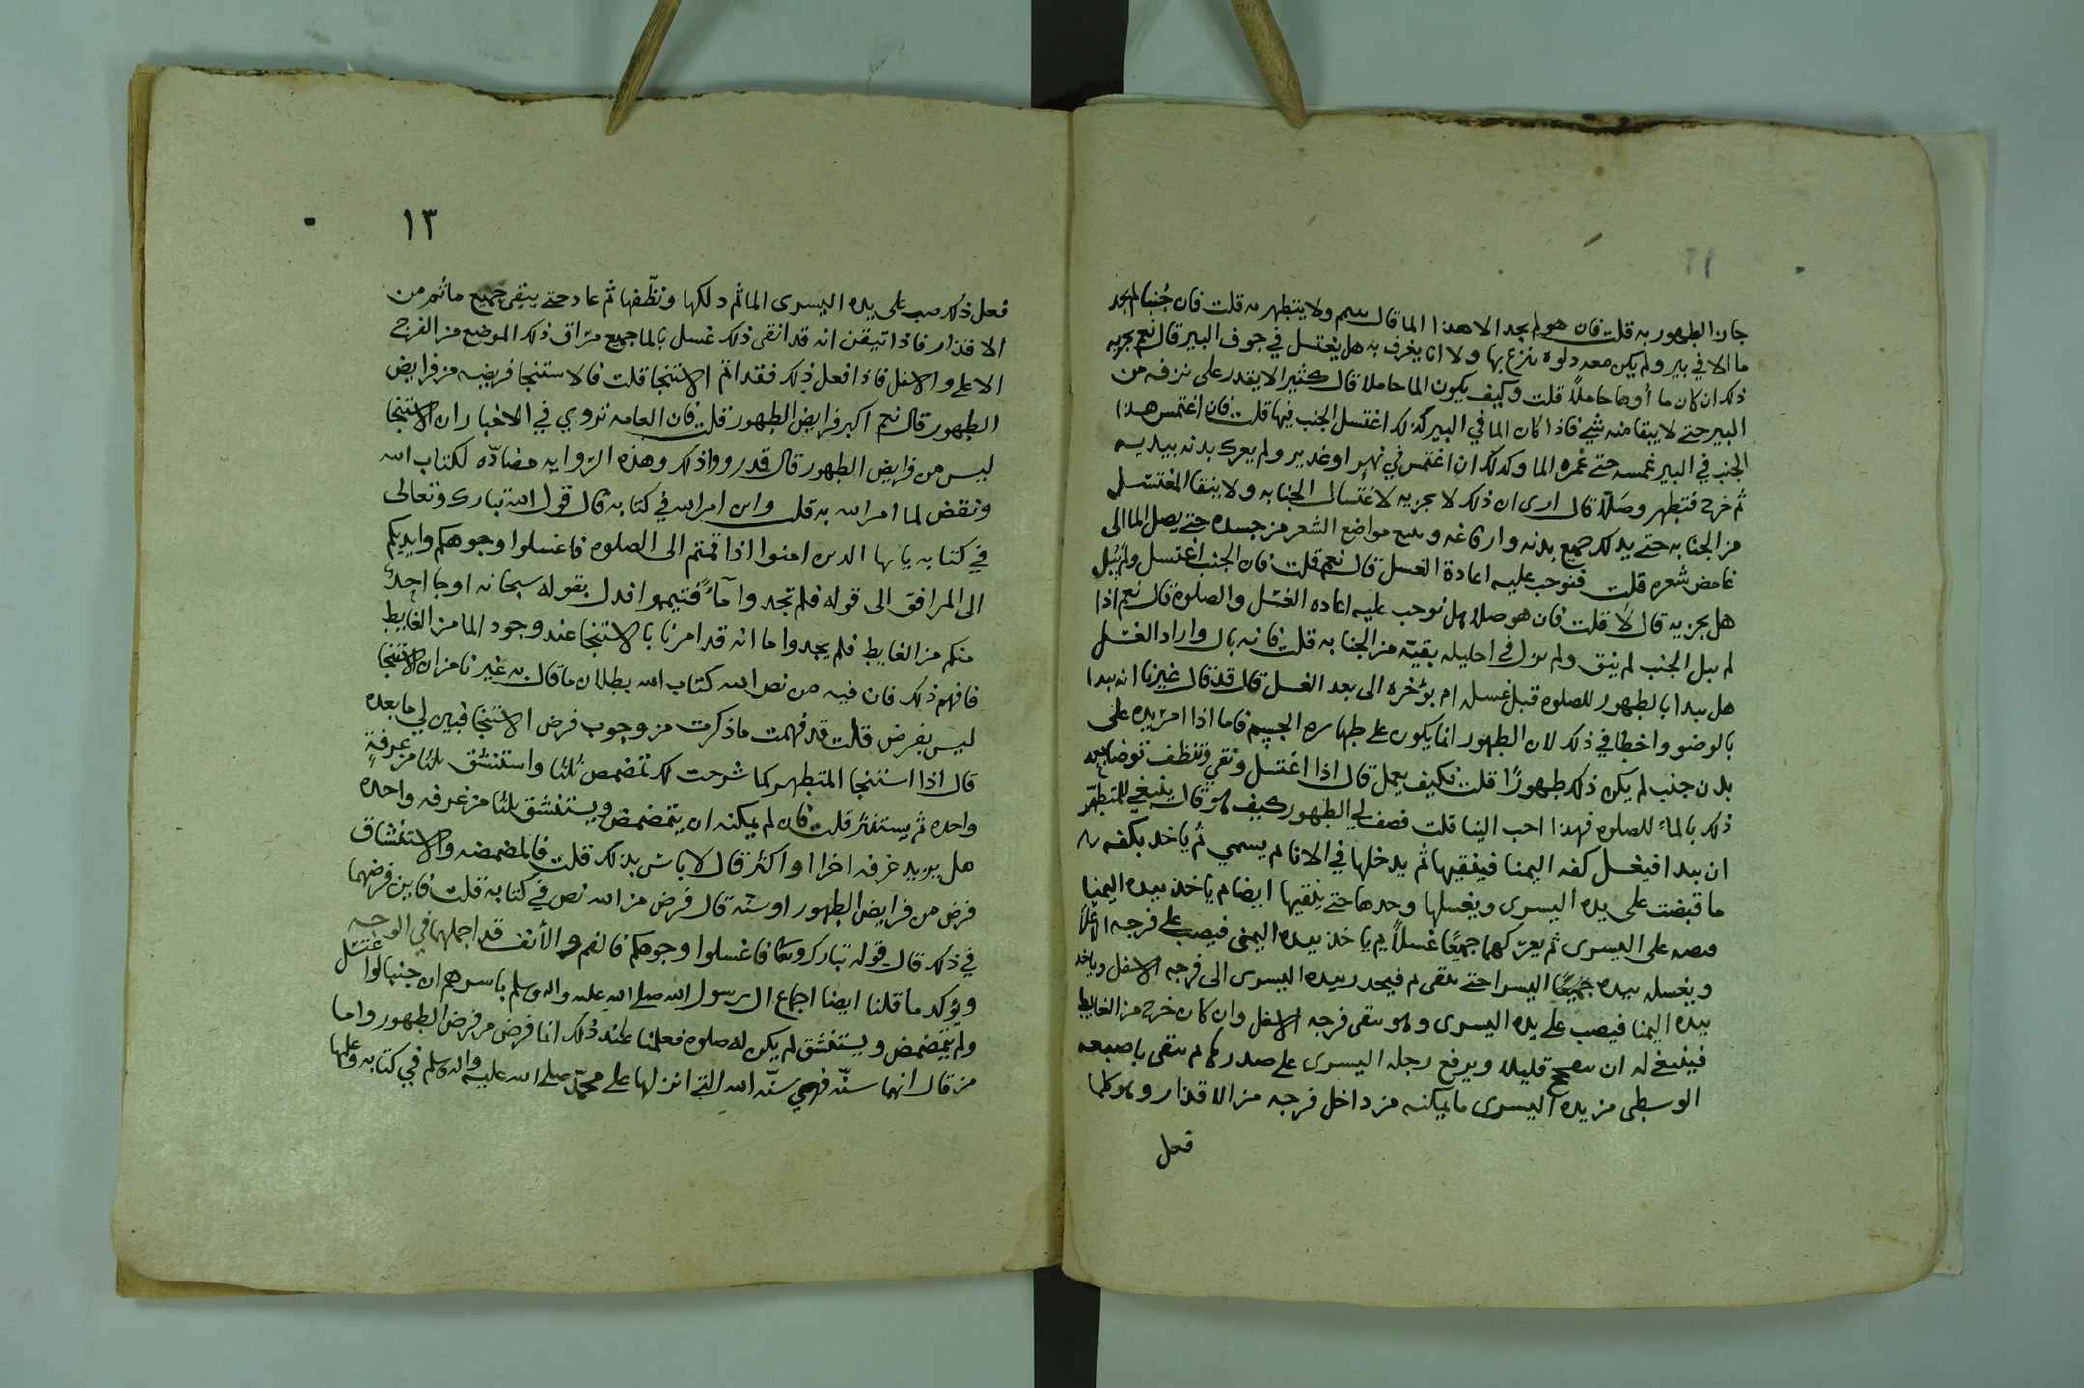 جاز الطهور به قلت فان هو لم يجد الا هذا الما قال يتيمم ولا يتطهر به قلت فان جُنبا لم يجد
ما الا في بير ولم يكن معه دلوه ينزع بها ولا انا يغرف به هل يغتسل في جوف البير قال نعم يجزيه
ذلك ان كان ما أوها حاملاً قلت وكيف يكون الما حاملا قال كثيرا لا يقدر على نزفه من
البير حتى لا يبقا منه شي فاذا كان الما في البير كذلك اغتسل الجنب فيها قلت فان اغتمس هذا
الجنب في البير غمسه حتى غمره الما وكذلك ان اغتمس في نهر او غدير ولم يعرك بدنه بيديه
ثم خرج فتطهر وصلّا قال ارى ان ذلك لا يجزيه لاغتسال الجنابه ولا ينقا المغتسل
من الجنابه حتى يدلك جميع بدنه وارفاغه وتتبع مواضع الشعر من جسده حتى يصل الما الى
غامض شعره قلت فتوجب عليه اعادة الغسل قال نعم قلت فان الجنب اغتسل ولم يَبُل
هل يجزيه قال لا قلت فان هو صلا هل توجب عليه اعاده الغسل والصلوة قال نعم اذا
لم يبل الجنب لم ينق ولم يزل في احليله بقيّه من الجنابه قلت فانه بال واراد الغسل
هل يبدا بالطهور للصلوه قبل غسله ام يؤخره الى بعد الغسل قال قد قال غيرنا انه يبدا
بالوضو واخطا في ذلك لان الطهور انما يكون على طهاره الجسم فاما اذا امرّ يده على
بدن جنب لم يكن ذلك طهورًا قلت فكيف يعمل قال اذا اغتسل ونقي وتنظف توضا بعد
ذلك بالماء للصلوه فهذا احب الينا قلت فصف لي الطهور كيف هو قال ينبغي للمتطهّر
ان يبدا فيغسل كفه اليمنا فينقيها ثم يدخلها في الانا ثم يسمي ثم ياخذ بكفه
ما قبضت على يده اليسرى ويغسلها وحدها حتى ينقيها ايضا ثم ياخذ بيده اليمنا
فيصبه على اليسرى ثم يعركهما جميعًا غسلاً ثم ياخذ بيده اليمنى فيصب على فرجه الاعلا
ويغسله بيده اليسرا حتى ينقى ثم فيحدر بيده اليسرى الى فرجه الاسفل وياخذ
بيده اليمنا فيصب على يده اليسرى وهو ينقى فرجه الاسفل وان كان خرج من الغايط
فينبغي له ان قليلا ويرفع رجله اليسرى على صدر ثم ينقى باصبعه
الوسطى من يده اليسرى ما يمكنه من داخل فرجه من الاقذار وهو كلما
فعل
١٣
فعل ذلك صب على يده اليسرى الما ثم دلكها ونظّفها ثم عاد حتى ينقى جميع ما ثم من
الاقذار فاذا تيقن انه قد انقى ذلك غسل بالما جميع مرّاق ذلك الموضع من الفرج
الاعلى والاسفل فاذا فعل ذلك فقد اتم الاستنجا قلت فالاستنجا فريضه من فرايض
الطهور قال نعم اكبر فرايض الطهور قلت فان العامه تروي في الاخبار ان الاستنجا
ليس من فرايض الطهور قال قد رووا ذلك وهذه الرّوايه مضادّه لكتاب الله
ونقض لما امر الله به قلت واين امر الله في كتابه قال قول الله تبارك وتعالى
في كتابه يايها الذين امنوا اذا قمتم الى الصلوه فاغسلوا وجوهكم وايديكم
الى المرافق الى قوله فلم تجدوا مآءً فتيمموا فدل بقوله سبحانه او جا احدٌ
منكم من الغايط فلم يجدوا ما انه قد امرنا بالاستنجا عند وجود الما من الغايط
فافهم ذلك فان فيه من نص الله كتاب الله بطلان ما قال به غيرنا من ان الاستنجا
ليس بفرض قلت قد فهمت ما ذكرت من وجوب فرض الاستنجا فبين لي ما بعده
قال اذا استنجا المتطهر كما شرحت لك تمضمض ثلثا واستنشق ثلثا من غرفةٍ
واحده ثم يستنثر قلت فان لم يمكنه ان يتمضمض ويستنشق ثلثا من غرفه واحده
هل يزيد غرفه اخرا او اكثر قال لا باس بذلك قلت فالمضمضه والاستنشاق
فرض من فرايض الطهور او سنّه قال فرض من الله نص في كتابه قلت فاين فرضهما
في ذلك قال قوله تبارك وتعا فاغسلوا وجوهكم فالفم والأنف قد اجملهما في الوجه
ويؤكد ما قلنا ايضا اجماع ال رسول الله صلى الله عليه واله وسلم باسرهم ان جنبا لو اغتسل
ولم يتمضمض ويستنشق لم يكن له صلوه فعلمنا عند ذلك انما فرض من فرض الطهور واما
من قال انهما سنّه فهي سنّه الله التي انزلها على محمّد صلى الله عليه واله وسلم في كتابه وعلمها